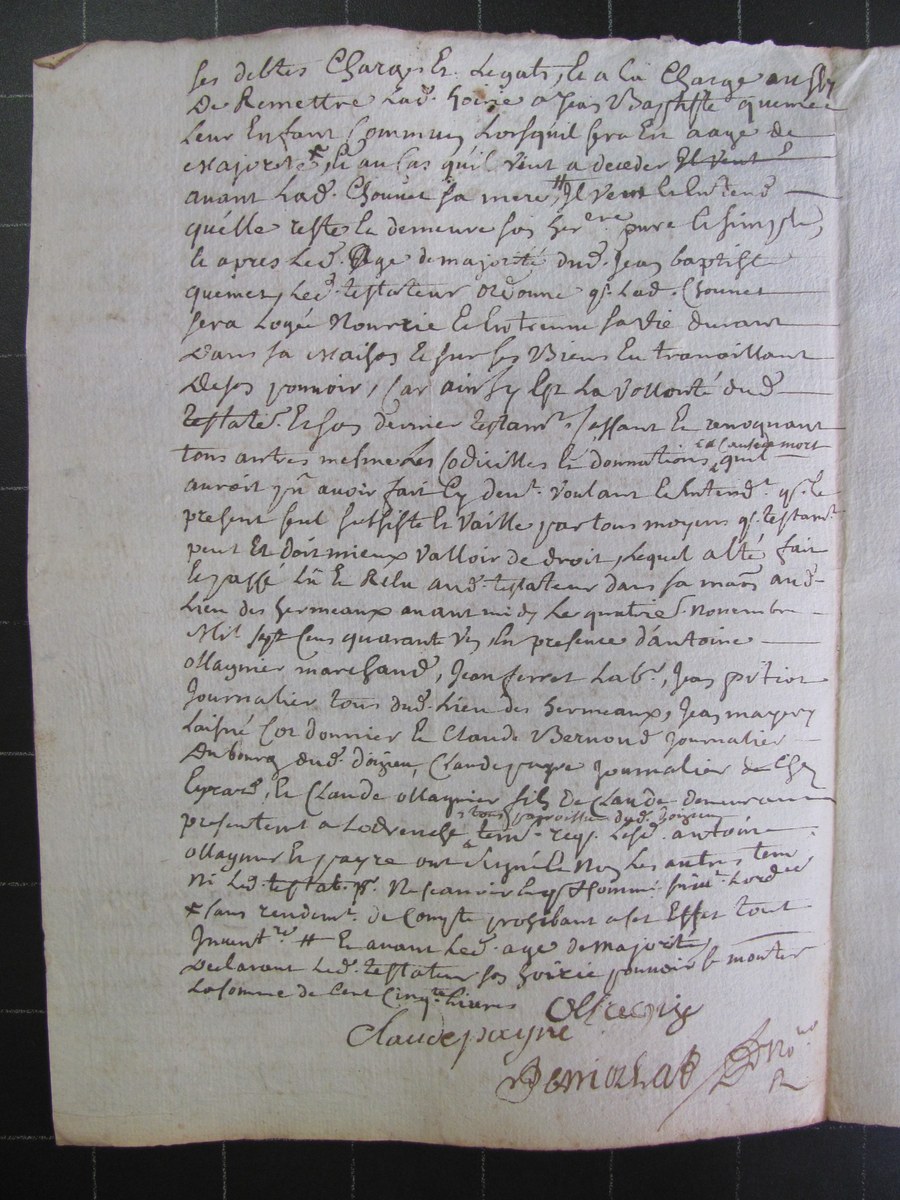 ses debtes Charges Et Legats, Et a la Charge aussy
De Remettre Lad. hoirie a Jean Baptiste quemet
Leur Enfant Commun Lorsquil sera En aage de
Majorité, Et au Cas qu'il vint a deceder Il veut
avant Lad. Chouvet sa mere, Il veut Et Entend
qu'elle reste Et demeure son her.re pure Et simple,
Et apres Led. Age de majorité dud. Jean baptiste
quemet, Led. testateur ordonne q. Lad. Chouvet
sera Logée Nourrie Et Entretenue sa vie durant
Dans sa Maison Et sur ses Biens En travaillant
De son pouvoir, Car ainsy Est La vollonté dud.
testate.r Et son dernier testam.t Cassant Et revoquant
tous autres mesme Les Codicilles Et donnations, quil
a Cause de mort
auroit pû avoir fait Cy dev.t voulant Et Entend.t q. Le
present seul subsiste Et vaille par tous moyens q. testam.t
peut Et doit mieux valloir de droit, Lequel a été fait
Et passé Lû Et Relu aud. testateur dans sa mais. aud.
Lieu des hermeaux avant midy Le quatrie. Novembre
Mil sept Cens quarante un, En presence d'antoine
Ollagnier marchand, Jean ferret Lab.r, Jean
Journalier tous dud. Lieu des hermeaux, Jean
Laisné Cordonnier Et Claude Bernoud Journalier
Du bourg dud. doizieu, Claude payre Journalier de Chez
Et Claude Ollagnier fils De Claude demeurant
tous parroisse dud. doizieu
presentement a tem. req. Lesd. antoine
Ollagnier Et payre ont signé Et Non Les autres tem.
Ni Led. testat. p. Ne scavoir Enq. Et Sommé suiv.t Lordce
sans rendem.t de Compte prohibant a Cet Effet tout
Invent.re # Et avant Led. age de majorité,
Declarant Led. testateur son hoirie pouvoir se monter
La somme de Cent Cinq.te Livres
Claude payre